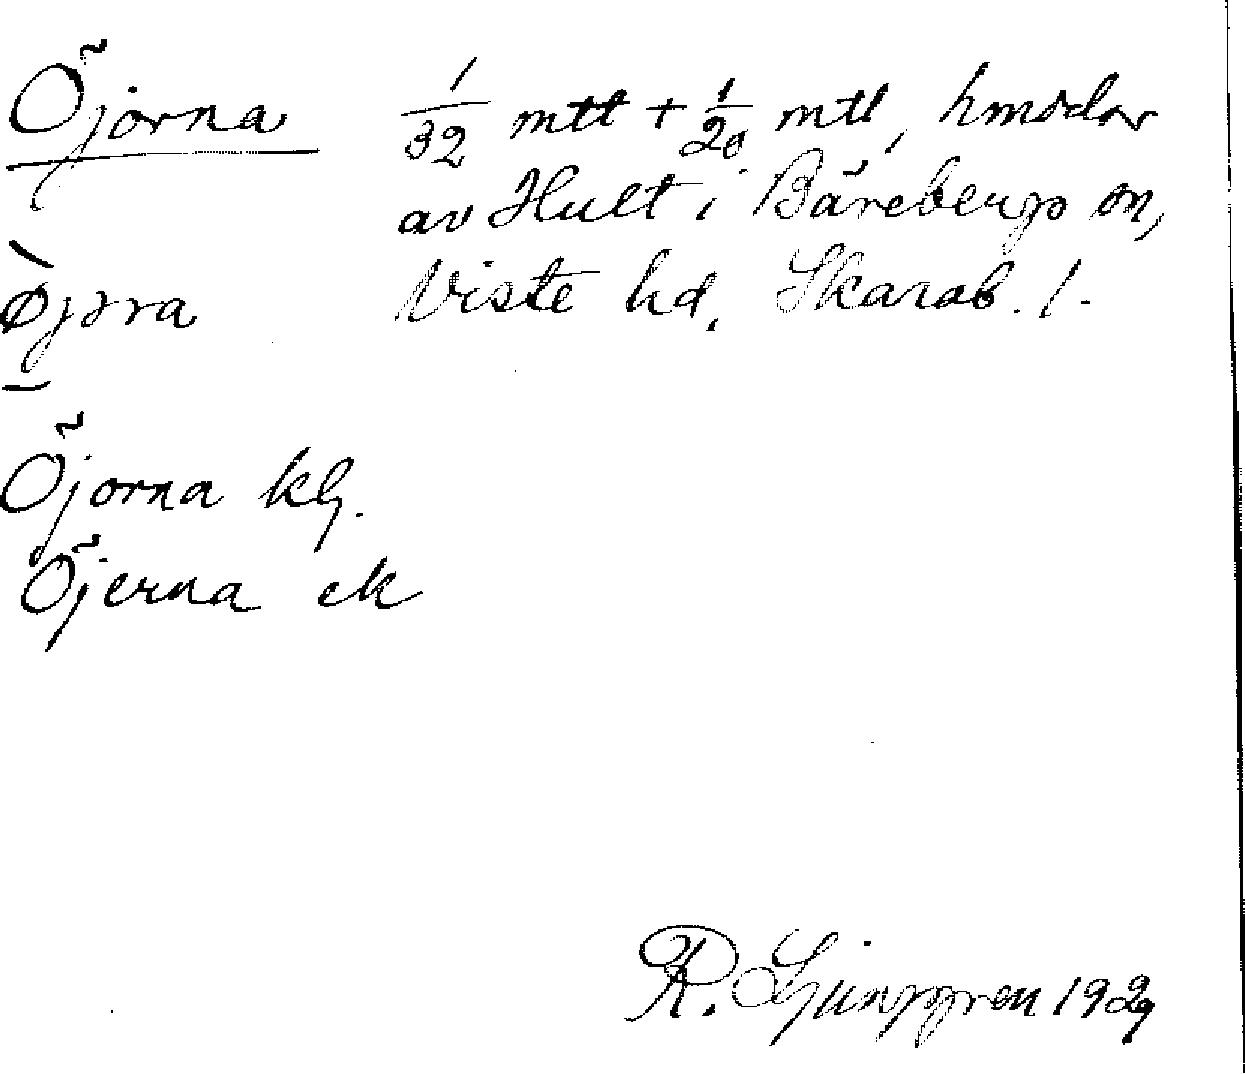 Öjorna
1/32 mtl + 1/20 mtl, hmsdlar
av Hult i Bärebergs sn,
Viste hd, Skarab. l.
Öjorna klg.
Öjerna ek
R. Ljunggren 1929